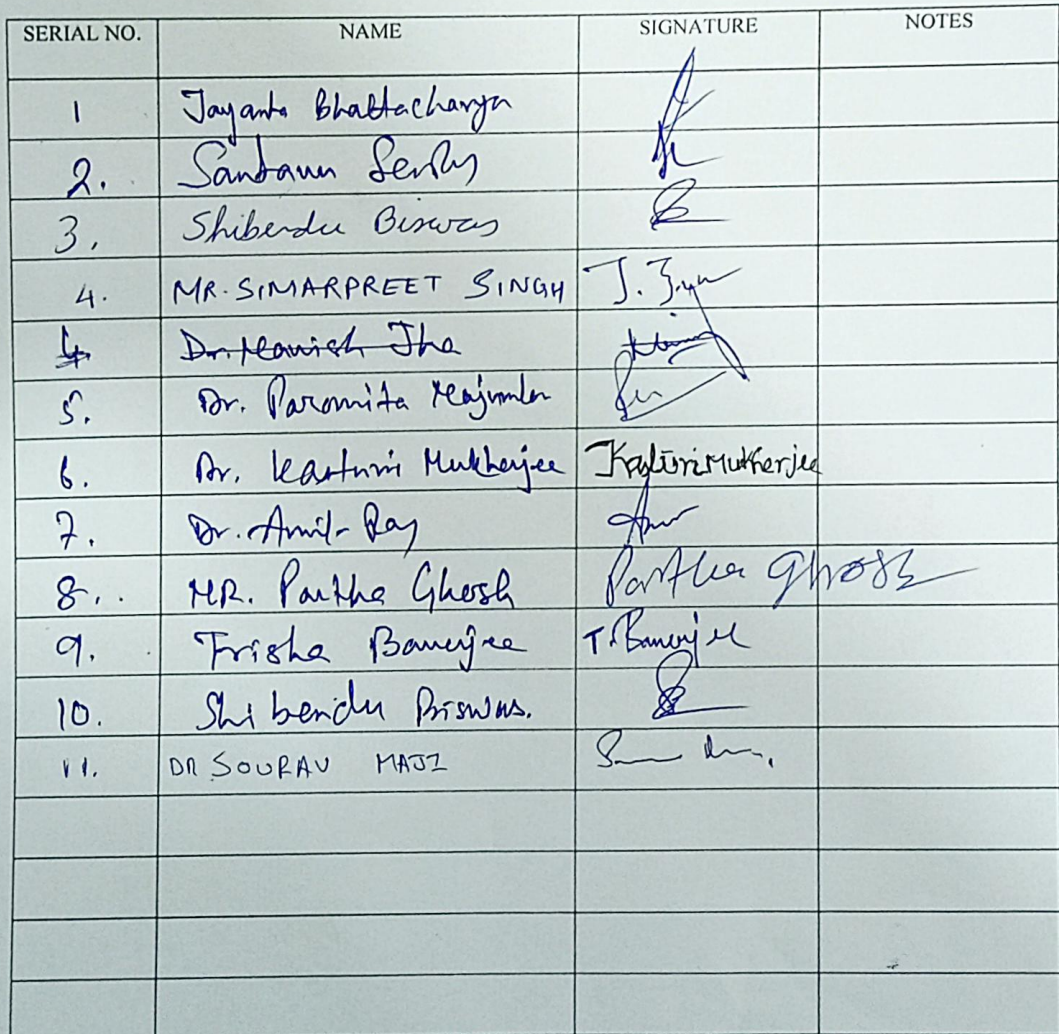 SERIAL NO. NAME SIGNATURE NOTES
1 Jayanta Bhattacharya
2. Santanu
3. Shibendu Biswas
4. MR. SIMARPREET SINGH
4 Dr. Manish Jha
5. Dr. Paromita Majumder
6. Dr. Kasturi Mukherjee Kasturi Mukherjee
7. Dr. Amit Ray
8. MR. Partha Ghosh Partha Ghosh
9. Trisha Banerjee T. Banerjee
10. Shibendu Biswas.
11. DR SOURAV MAJI